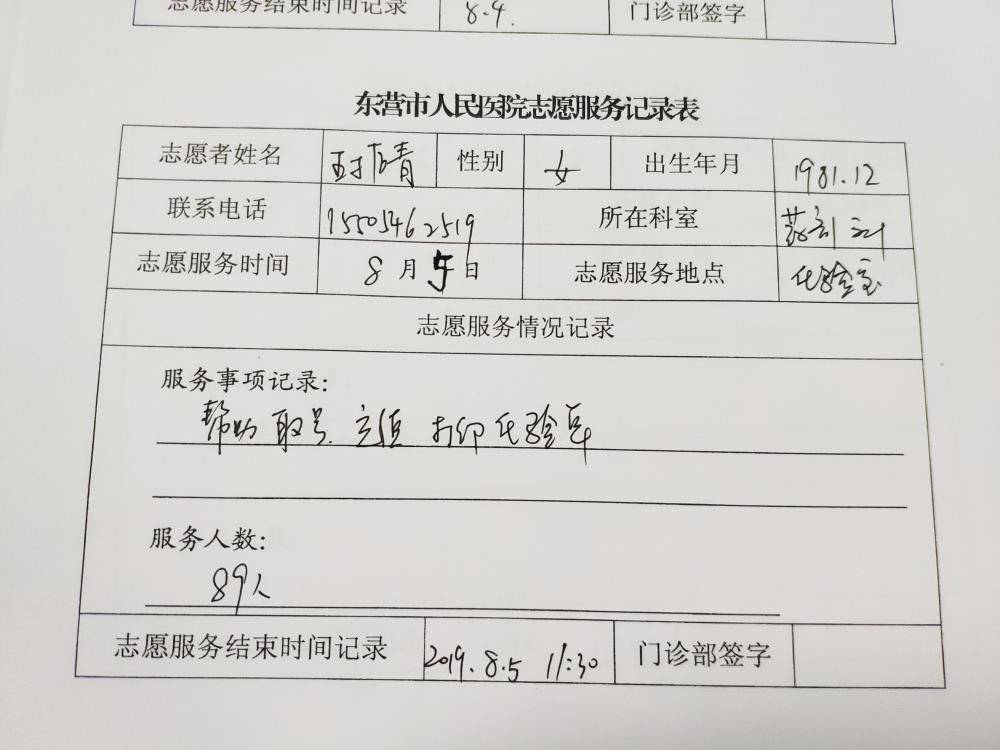 志愿服务结束时间记录 8.4. 门诊部签字
东营市人民医院志愿服务记录表
志愿者姓名 性别 女 出生年月 1981.12
联系电话 15505462519 所在科室 药剂科
志愿服务时间 8月5日 志愿服务地点 化验室
志愿服务情况记录
服务事项记录:
帮助取号. 充值 打印化验单
服务人数:
89人
志愿服务结束时间记录 2019.8.5 11:30 门诊部签字